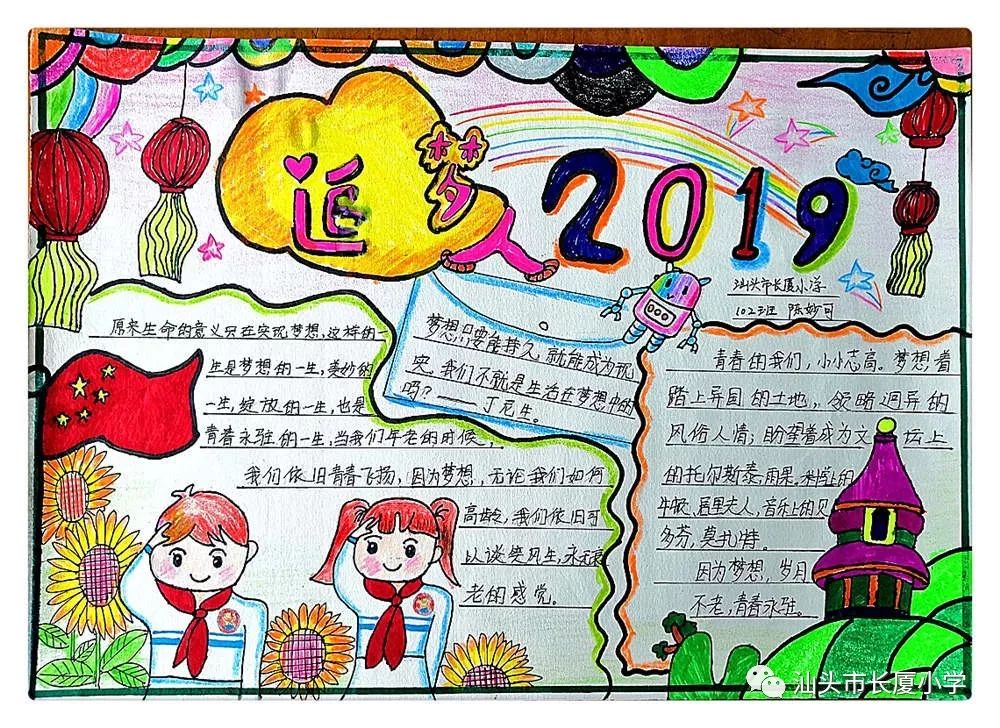 追梦
2019
汕头市长厦小学
102班 陈妙可
原来生命的意义只在实现梦想，这样的一
生是梦想的一生，美妙的
一生，绽放的一生，也是
青春永驻的一生，当我们年老的时候，
我们依旧青春飞扬，因为梦想，无论我们如何
高龄，我们依旧可
以谈笑风生，永无衰
老的感觉。
梦想只要能持久，就能成为现
实。我们不就是生活在梦想中的
吗？——丁尼生。
青春的我们，小小志高。梦想着
踏上异国的土地，领略迥异的
风俗人情；盼望着成为文坛上
的托尔斯泰，雨果，科学上的
牛顿、居里夫人，音乐上的贝
多芬，莫扎特。
因为梦想，岁月
不老，青春永驻。
汕头市长厦小学